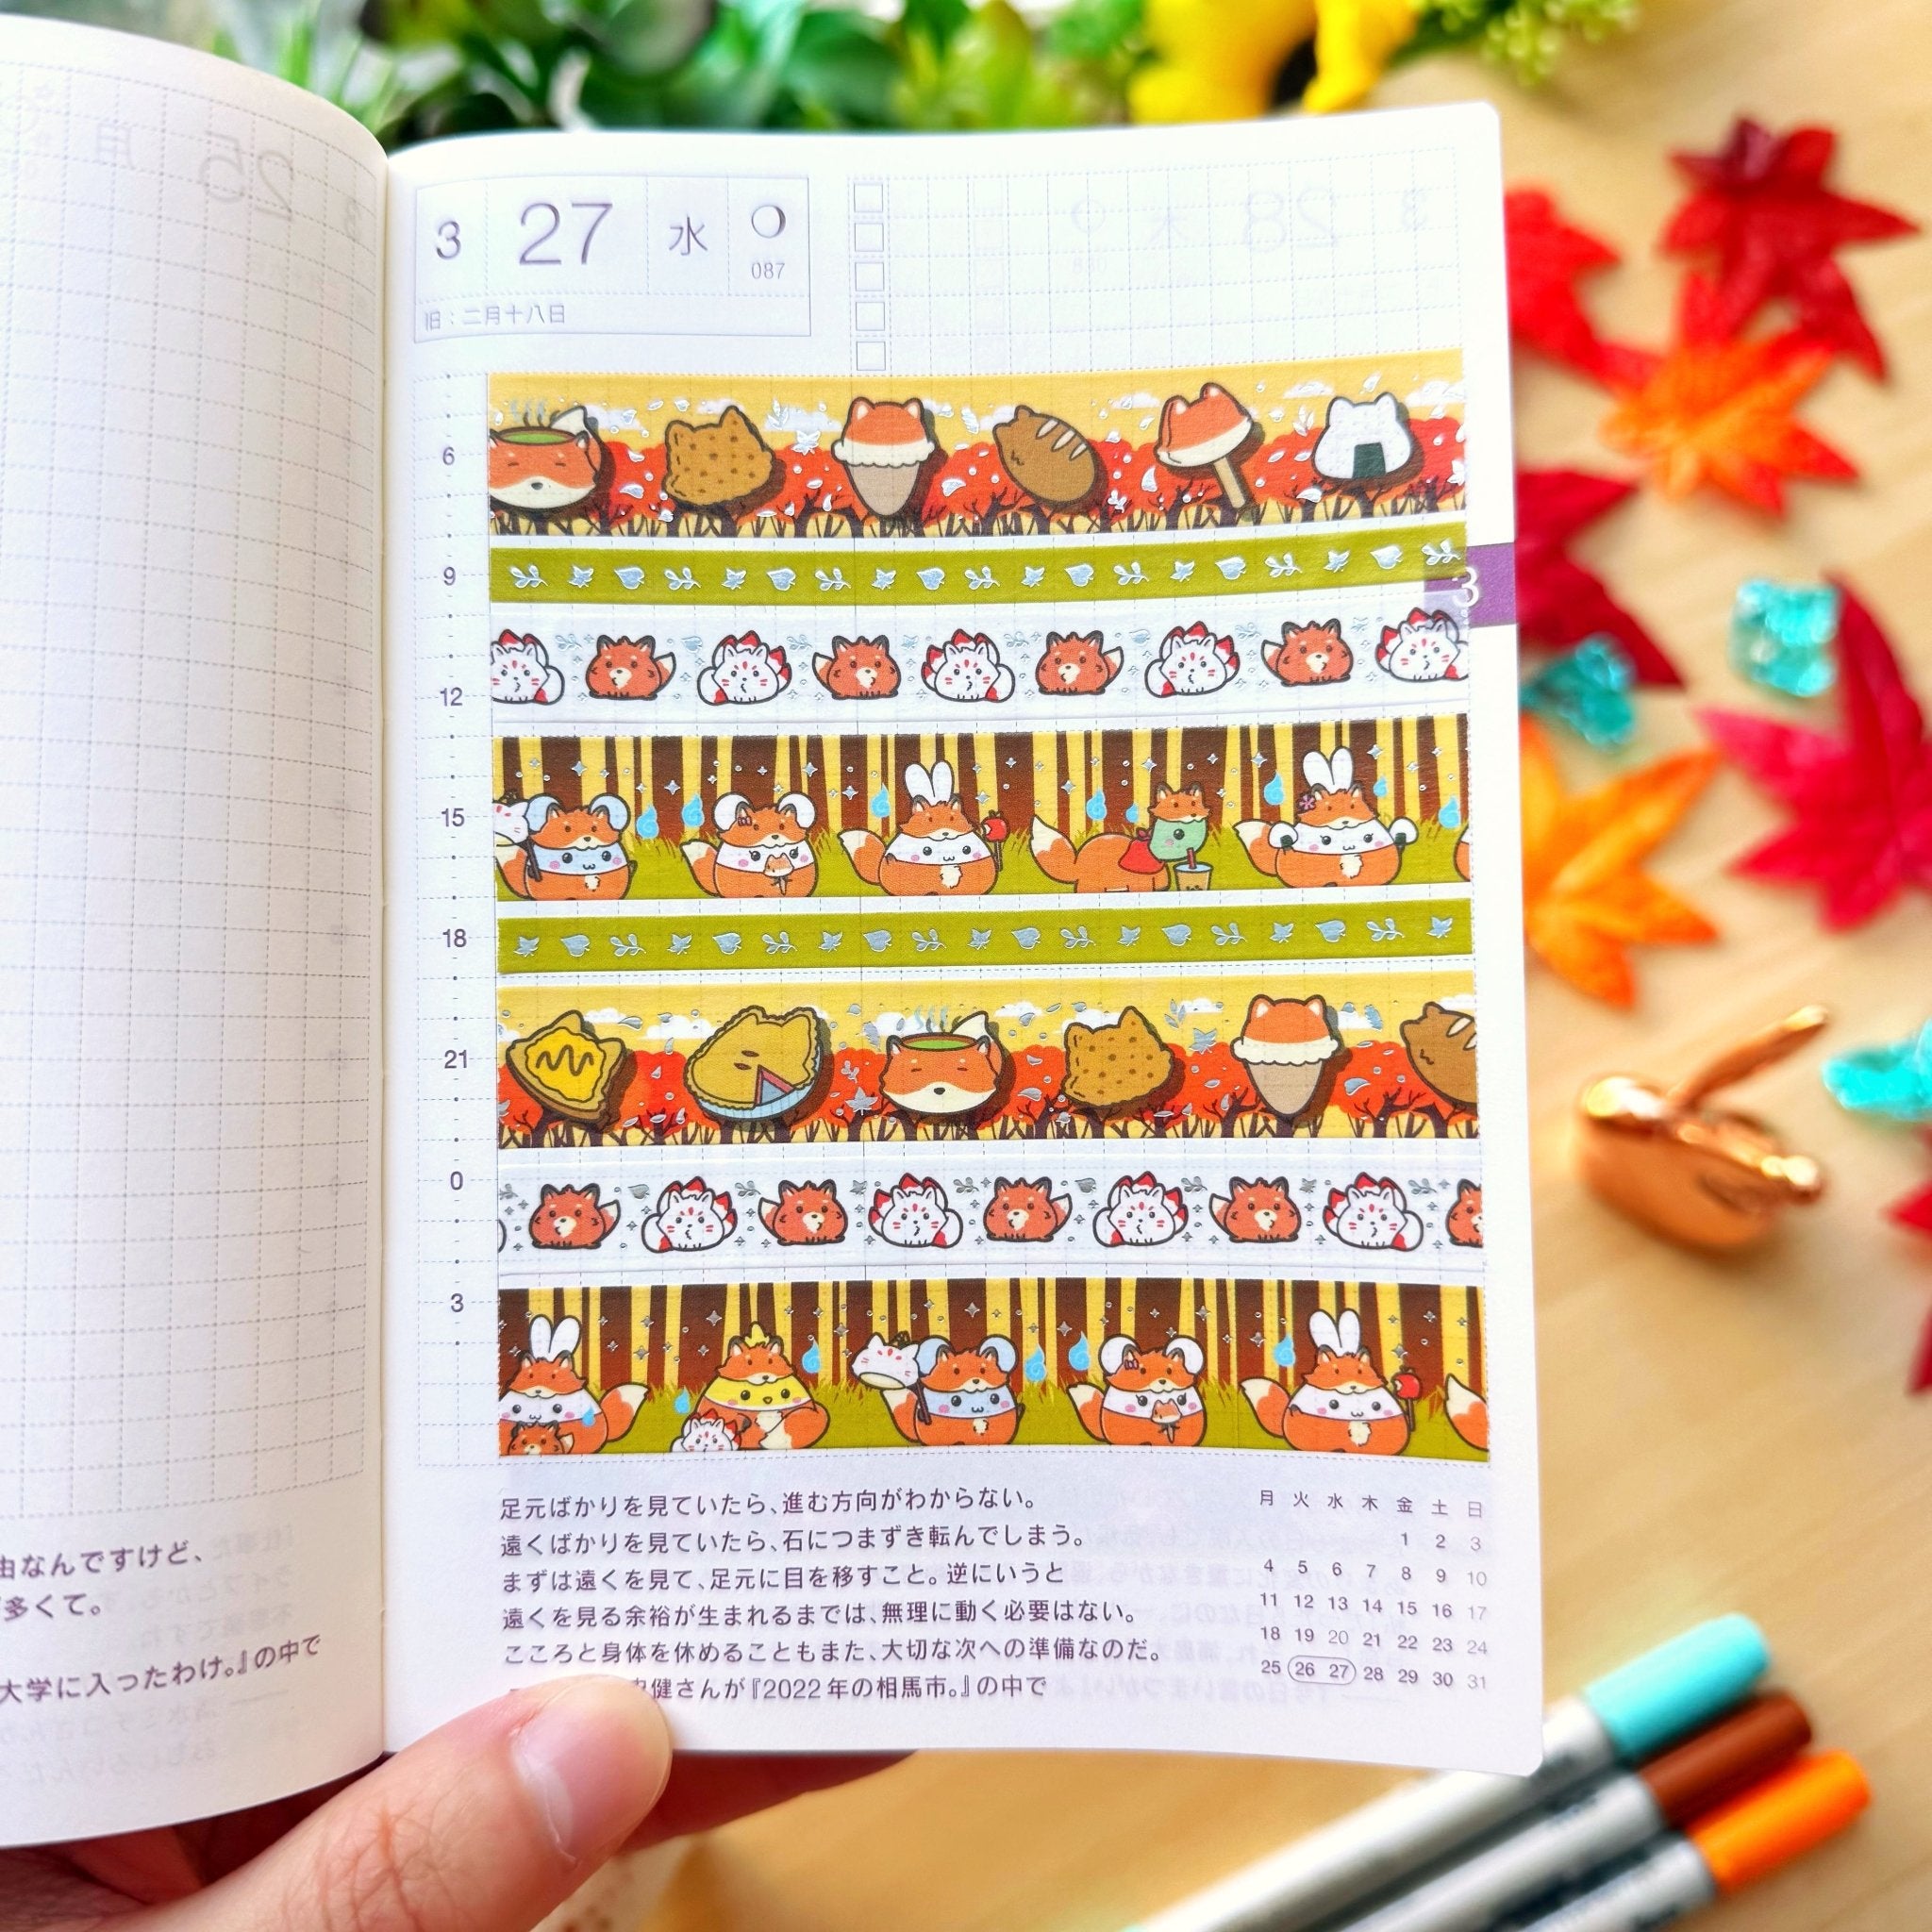 由なんですけど、
多くて。
大学に入ったわけ。』の中で
3 27 水
087
旧：二月十八日
6
9
3
12
15
18
21
0
3
足元ばかりを見ていたら、進む方向がわからない。
遠くばかりを見ていたら、石につまずき転んでしまう。
まずは遠くを見て、足元に目を移すこと。逆にいうと
遠くを見る余裕が生まれるまでは、無理に動く必要はない。
こころと身体を休めることもまた、大切な次への準備なのだ。
健さんが『2022年の相馬市。』の中で
月 火 水 木 金 土 日
1 2 3
4 5 6 7 8 9 10
11 12 13 14 15 16 17
18 19 20 21 22 23 24
25 26 27 28 29 30 31